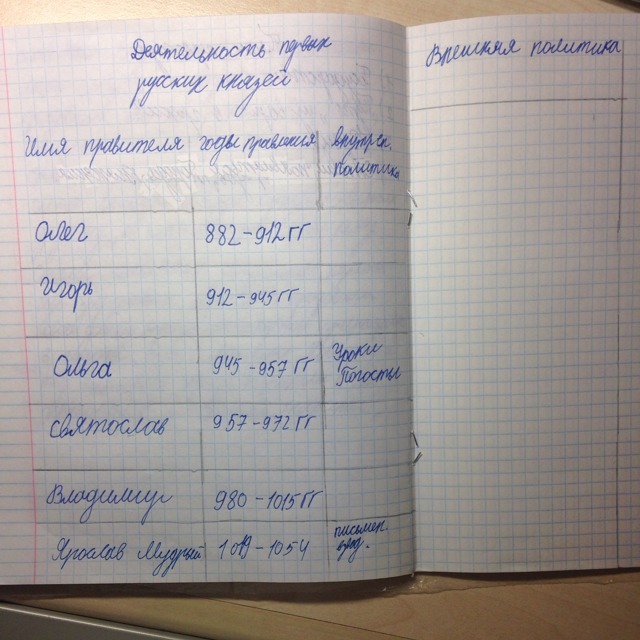 Деятельность первых
русских князей
Внешняя политика
Имя правителя годы правления внутрен.
политика
Олег 882-912гг
Игорь 912-945гг
Ольга 945-957гг Уроки
Погосты
Святослав 957-972гг
Владимир 980-1015гг
Ярослав Мудрый 1019-1054 письмен.